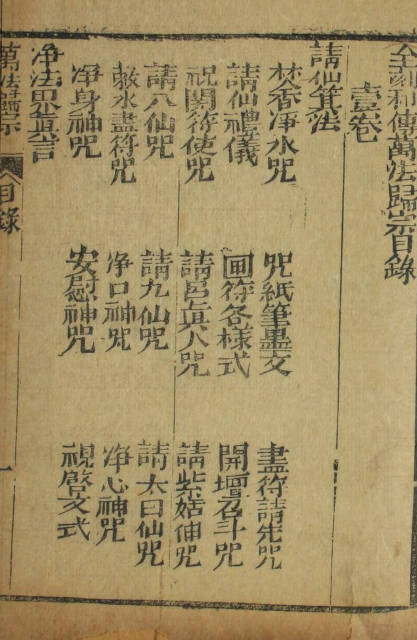 全刻秘傳萬法歸宗目錄
壹卷
請仙箕法
焚香凈水咒　咒紙筆墨文　畫符請先咒
請仙禮儀　画符各樣式　開壇召斗咒
祝関符使咒　請呂真人咒　請紫姑伸咒
請八仙咒　請九仙咒　請太白仙咒
敕水畫符咒　净口神咒　净心神咒
净身神咒　安慰神咒　視啓文式
净法界真言
萬法歸宗　目錄　一